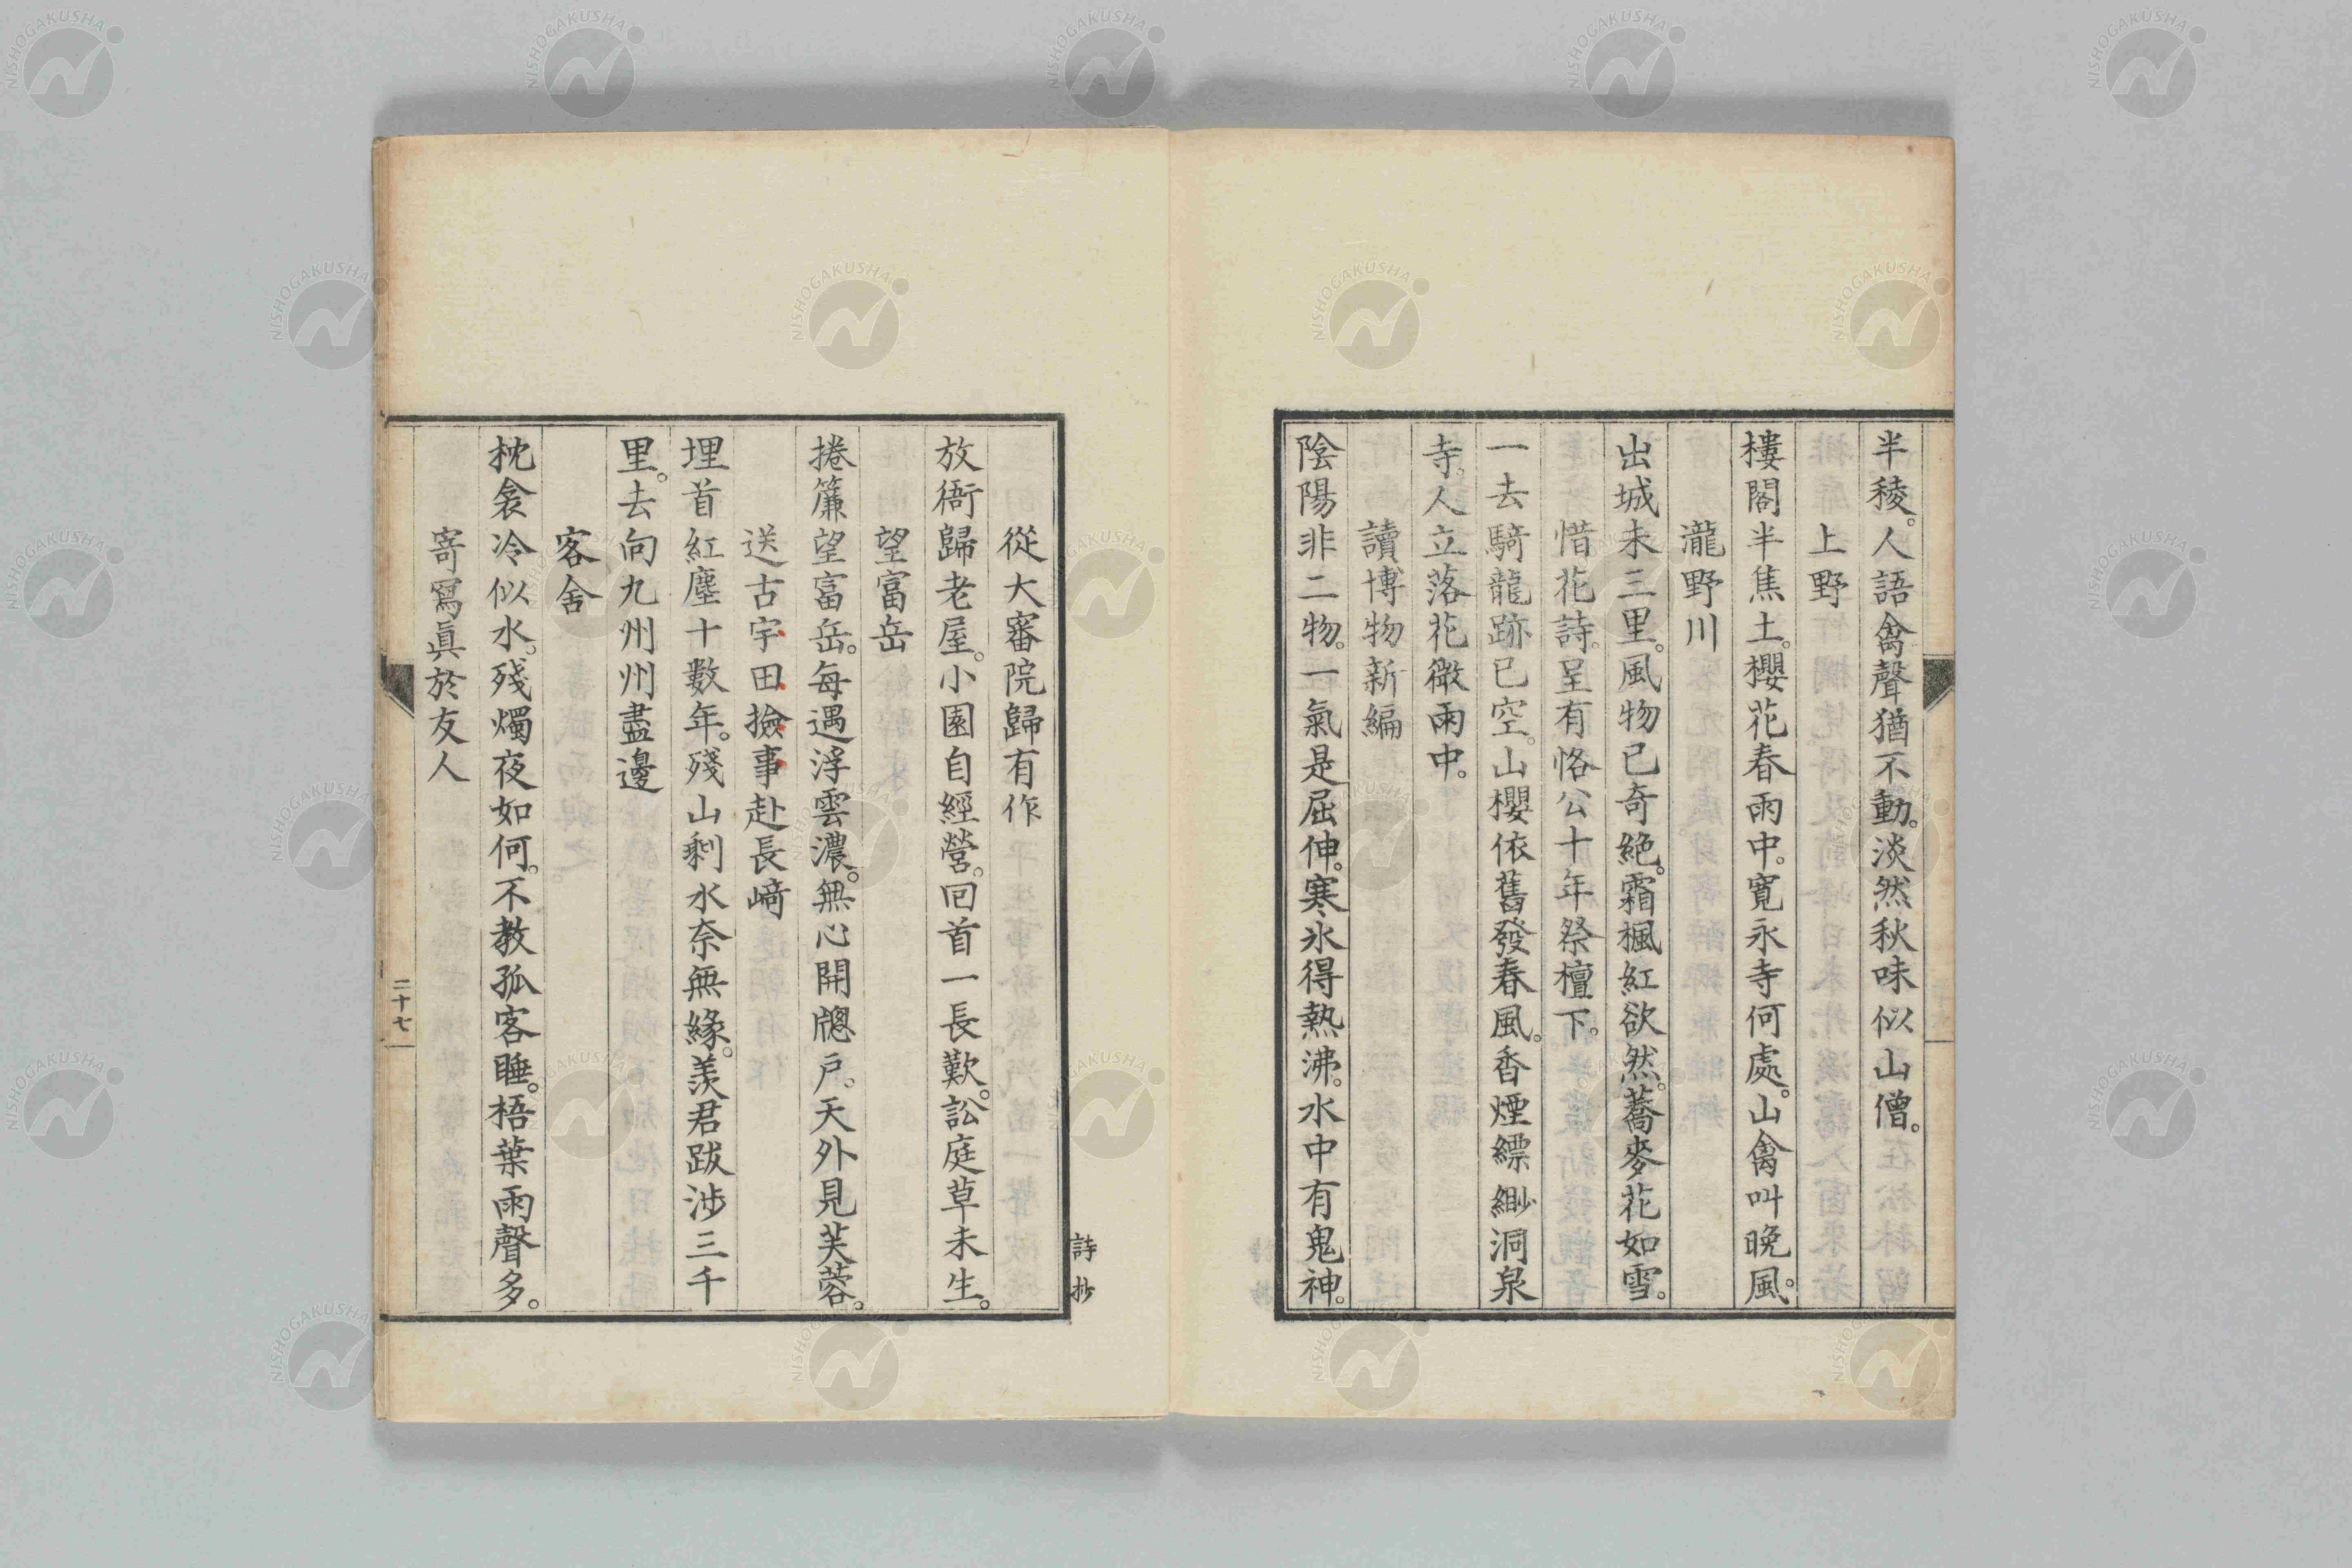 半稜。人語禽聲猶不動。淡然秋味似山僧。
上野
樓閣半焦土。櫻花春雨中。寛永寺何處。山禽叫晩風。
瀧野川
出城未三里。風物已奇絶。霜楓紅欲然。蕎麥花如雪。
惜花詩。呈有恪公十年祭檀下。
一去騎龍跡已空。山櫻依舊發春風。香煙縹緲洞泉
寺。人立落花微雨中。
讀博物新編
陰陽非二物。一氣是屈伸。寒氷得熱沸。水中有鬼神。
詩抄
從大審院歸有作
放衙歸老屋。小園自經營。回首一長歎。訟庭草未生。
望富岳
捲簾望富岳。每遇浮雲濃。無心開牕戶。天外見芙蓉。
送古宇田撿事赴長崎
埋首紅塵十數年。殘山剩水奈無緣。羨君跋涉三千
里。去向九州州盡邊
客舍
枕衾冷似水。殘燭夜如何。不教孤客睡。梧葉雨聲多。
寄寫眞於友人
二十七
NISHOGAKUSHA